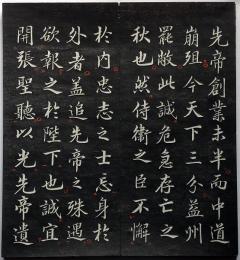 先帝創業未半而中道
崩殂今天下三分益州
罷敝此誠危急存亡之
秋也然侍衛之臣不懈
於内忠志之士忘身於
外者蓋追先帝之殊遇
欲報之於陛下也誠宜
開張聖聽以光先帝遺